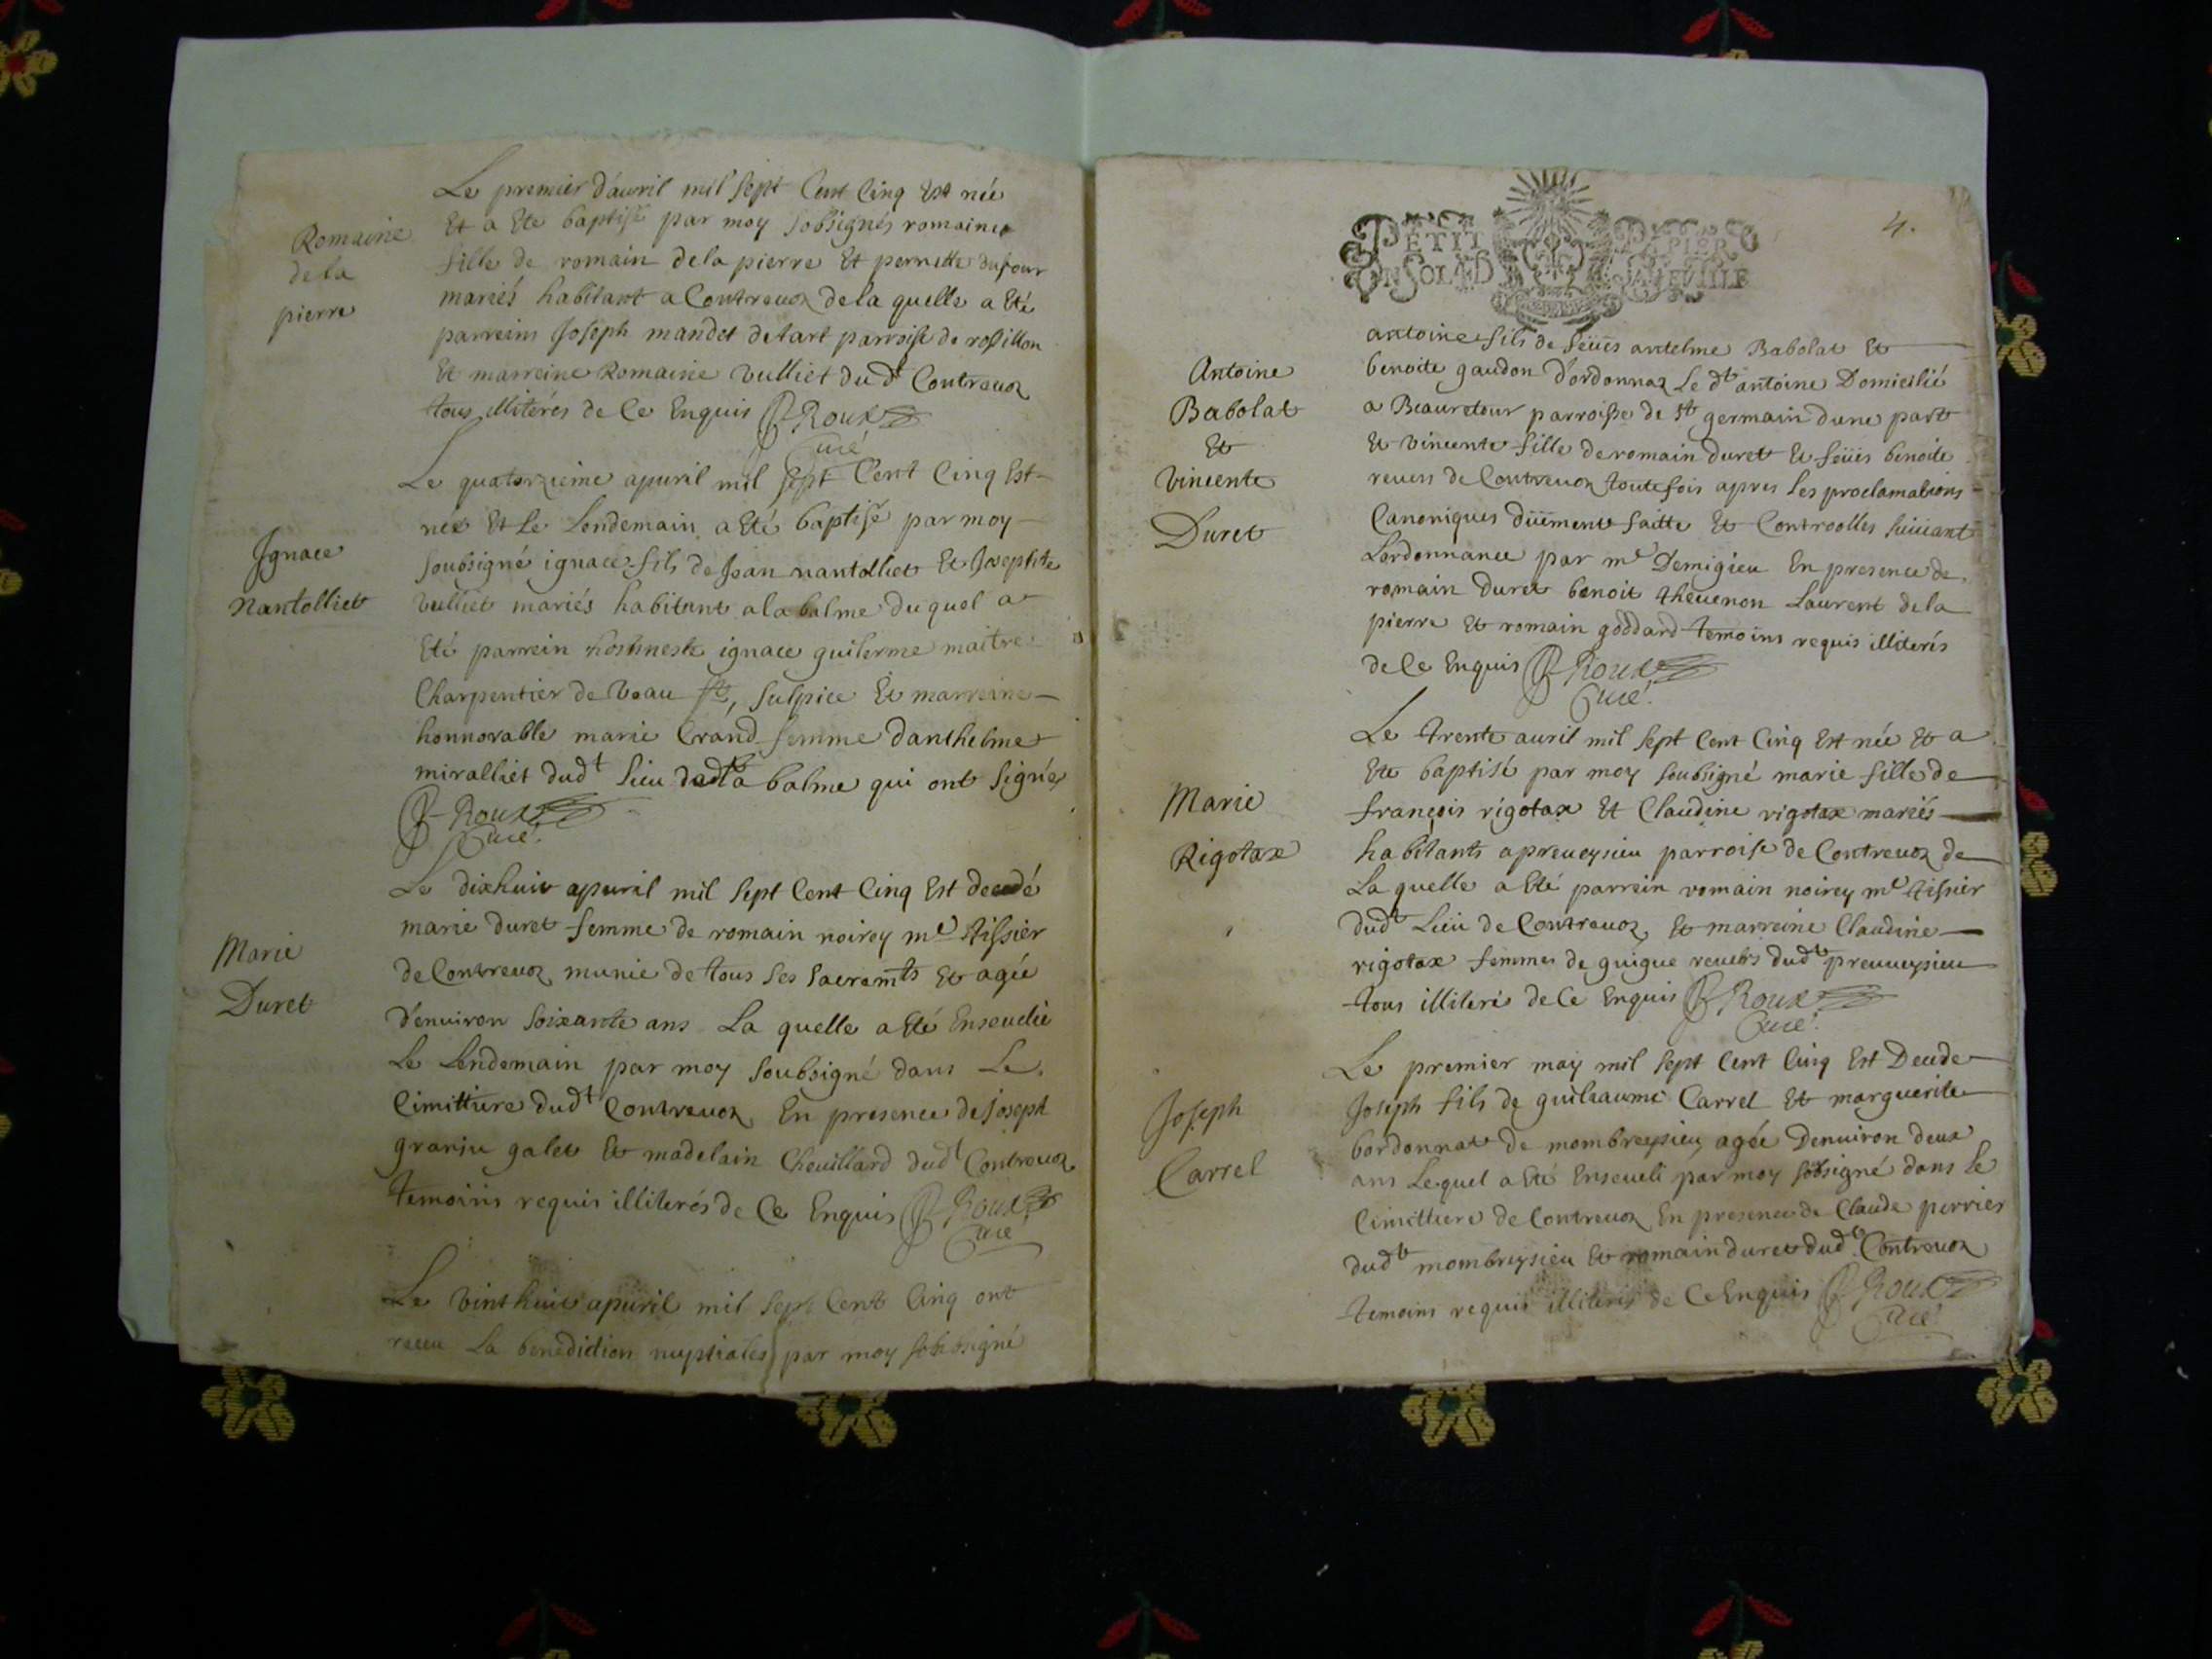 Le premier d'auvril mil sept Cent Cinq Est née
Et a Ete baptisé par moy sobsignés romaine
fille de romain dela pierre Et pernette dufour
mariés habitant a Contreuoz dela quelle a Eté
parreins Joseph mandet detart parroisse de rossillon
Et marreine Romaine Vulliet dud^t Contreuoz
tous illiterés de Ce Enquis Roux
Curé
Romaine
dela
pierre
Le quatorzieme apuril mil sept Cent Cinq Est
née Et Le Lendemain a Eté baptisé par moy
soubsigné ignace fils de Jean nantolliet Et Josephte
Vulliet mariés habitant a la balme du quel a
Eté parrein ignace guilerme maitre
Charpentier de Veau st, sulpice Et marreine
honnorable marie Crand femme danthelme
miralliet dud^t lieu dud^t la balme qui ont signés
Roux
Curé.
Ignace
Nantolliet
Le dixhuit apuril mil sept Cent Cinq Est decedé
marie duret femme de romain noirey m^e tissier
de Contreuoz munie de tous ses sacramts Et agée
d'enuiron soixante ans La quelle a Eté Enseuelie
Le Lendemain par moy soubsigné dans Le
Cimittiere dud^t Contreuoz En presence de joseph
granju galet Et madelain Cheuillard dud^t Contreuoz
temoins requis illiterés de Ce Enquis Roux
Curé
Marie
Duret
Le vinthuit apuril mil sept Cent Cinq ont
receu La benediction nuptiales par moy sobsigné
4.
PETIT PAPIER
UN SOL
antoine fils de feüs antelme Babolat Et
benoite gaudon d'ordonnaz Le d^t antoine Domicilié
a Beauretour parroisse de s^t germain dune part
Et vincente fille de romain duret Et feüs benoite
reuers de Contreuoz toutefois apres Les proclamations
Canoniques düement faitte Et Controolles suiüant
Lordonnance par m^e Demigieu En presence de
romain duret benoit theuenon Laurent dela
pierre Et romain goddard temoins requis illiterés
de Ce Enquis Roux
Curé.
Antoine
Babolat
Et
Vincente
Duret
Le trente auril mil sept Cent Cinq Est née Et a
Ete baptisé par moy soubsigné marie fille de
françois rigotax Et Claudine rigotax mariés
habitants a preueysieu parroise de Contreuoz de
La quelle a Eté parrein romain noirey m^e tissier
dud^t Lieu de Contreuoz Et marreine Claudine
rigotax femmes de guigue reuers dud^t preuueysieu
tous illiteré de Ce Enquis Roux
Curé.
Marie
Rigotax
Le premier may mil sept Cent Cinq Est Decede
Joseph fils de guilliaume Carrel Et marguerite
bordonnat de mombreysieu agée Denuiron deux
ans Lequel a Eté Enseueli par moy sobsigné dans Le
Cimittiere de Contreuoz En presence de Claude perrier
dud^t mombreysieu Et romain duret dud^t Contreuoz
temoins requis illiterés de Ce Enquis Roux
Curé
Joseph
Carrel